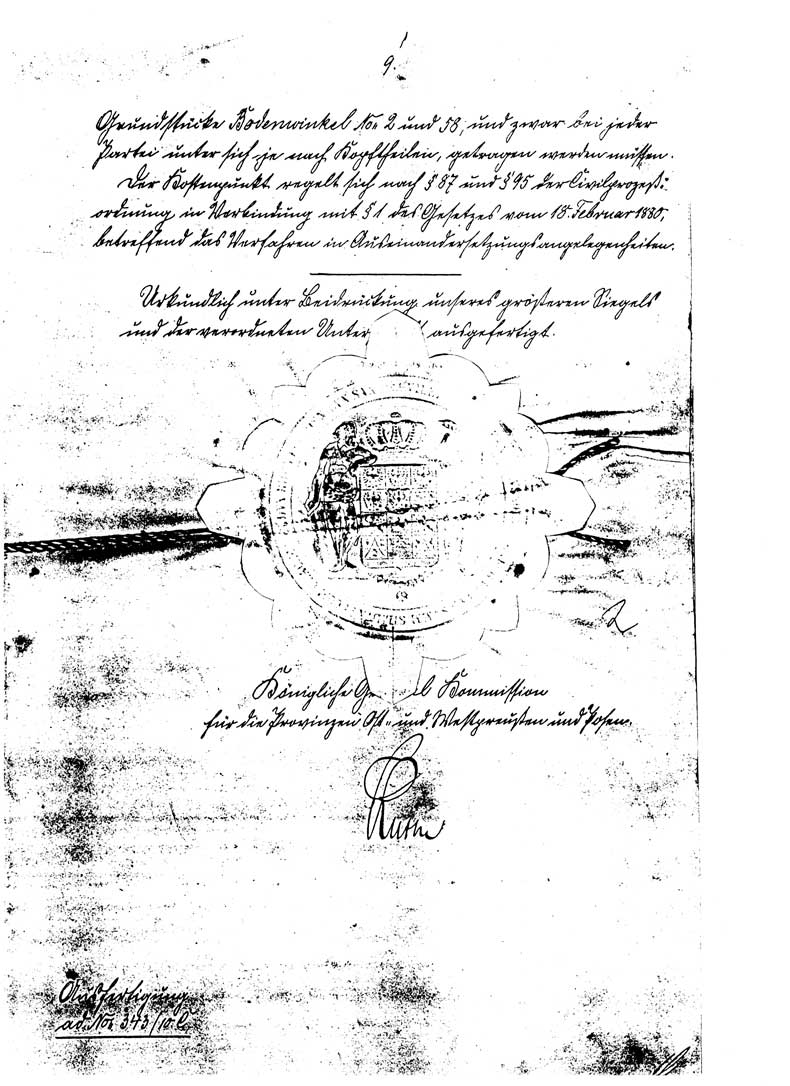 9.
Grundstücke Bodenwinkel No 2 und 58, und zwar bei jeder
Partei unter sich je nach Kopftheilen, getragen werden müssen.
Der Kostenpunkt regelt sich nach § 87 und § 95 der Civilprozeß:
ordnung in Verbindung mit § 1 des Gesetzes vom 18. Februar 1880,
betreffend das Verfahren in Auseinandersetzungsangelegenheiten.
Urkundlich unter Beidruckung unseres größeren Siegels
und der verordneten Unter ausgefertigt.
2
Königliche Ge l Kommission
für die Provinzen Ost- und Westpreußen und Posen.
Ausfertigung
ad. No 343/10. C.